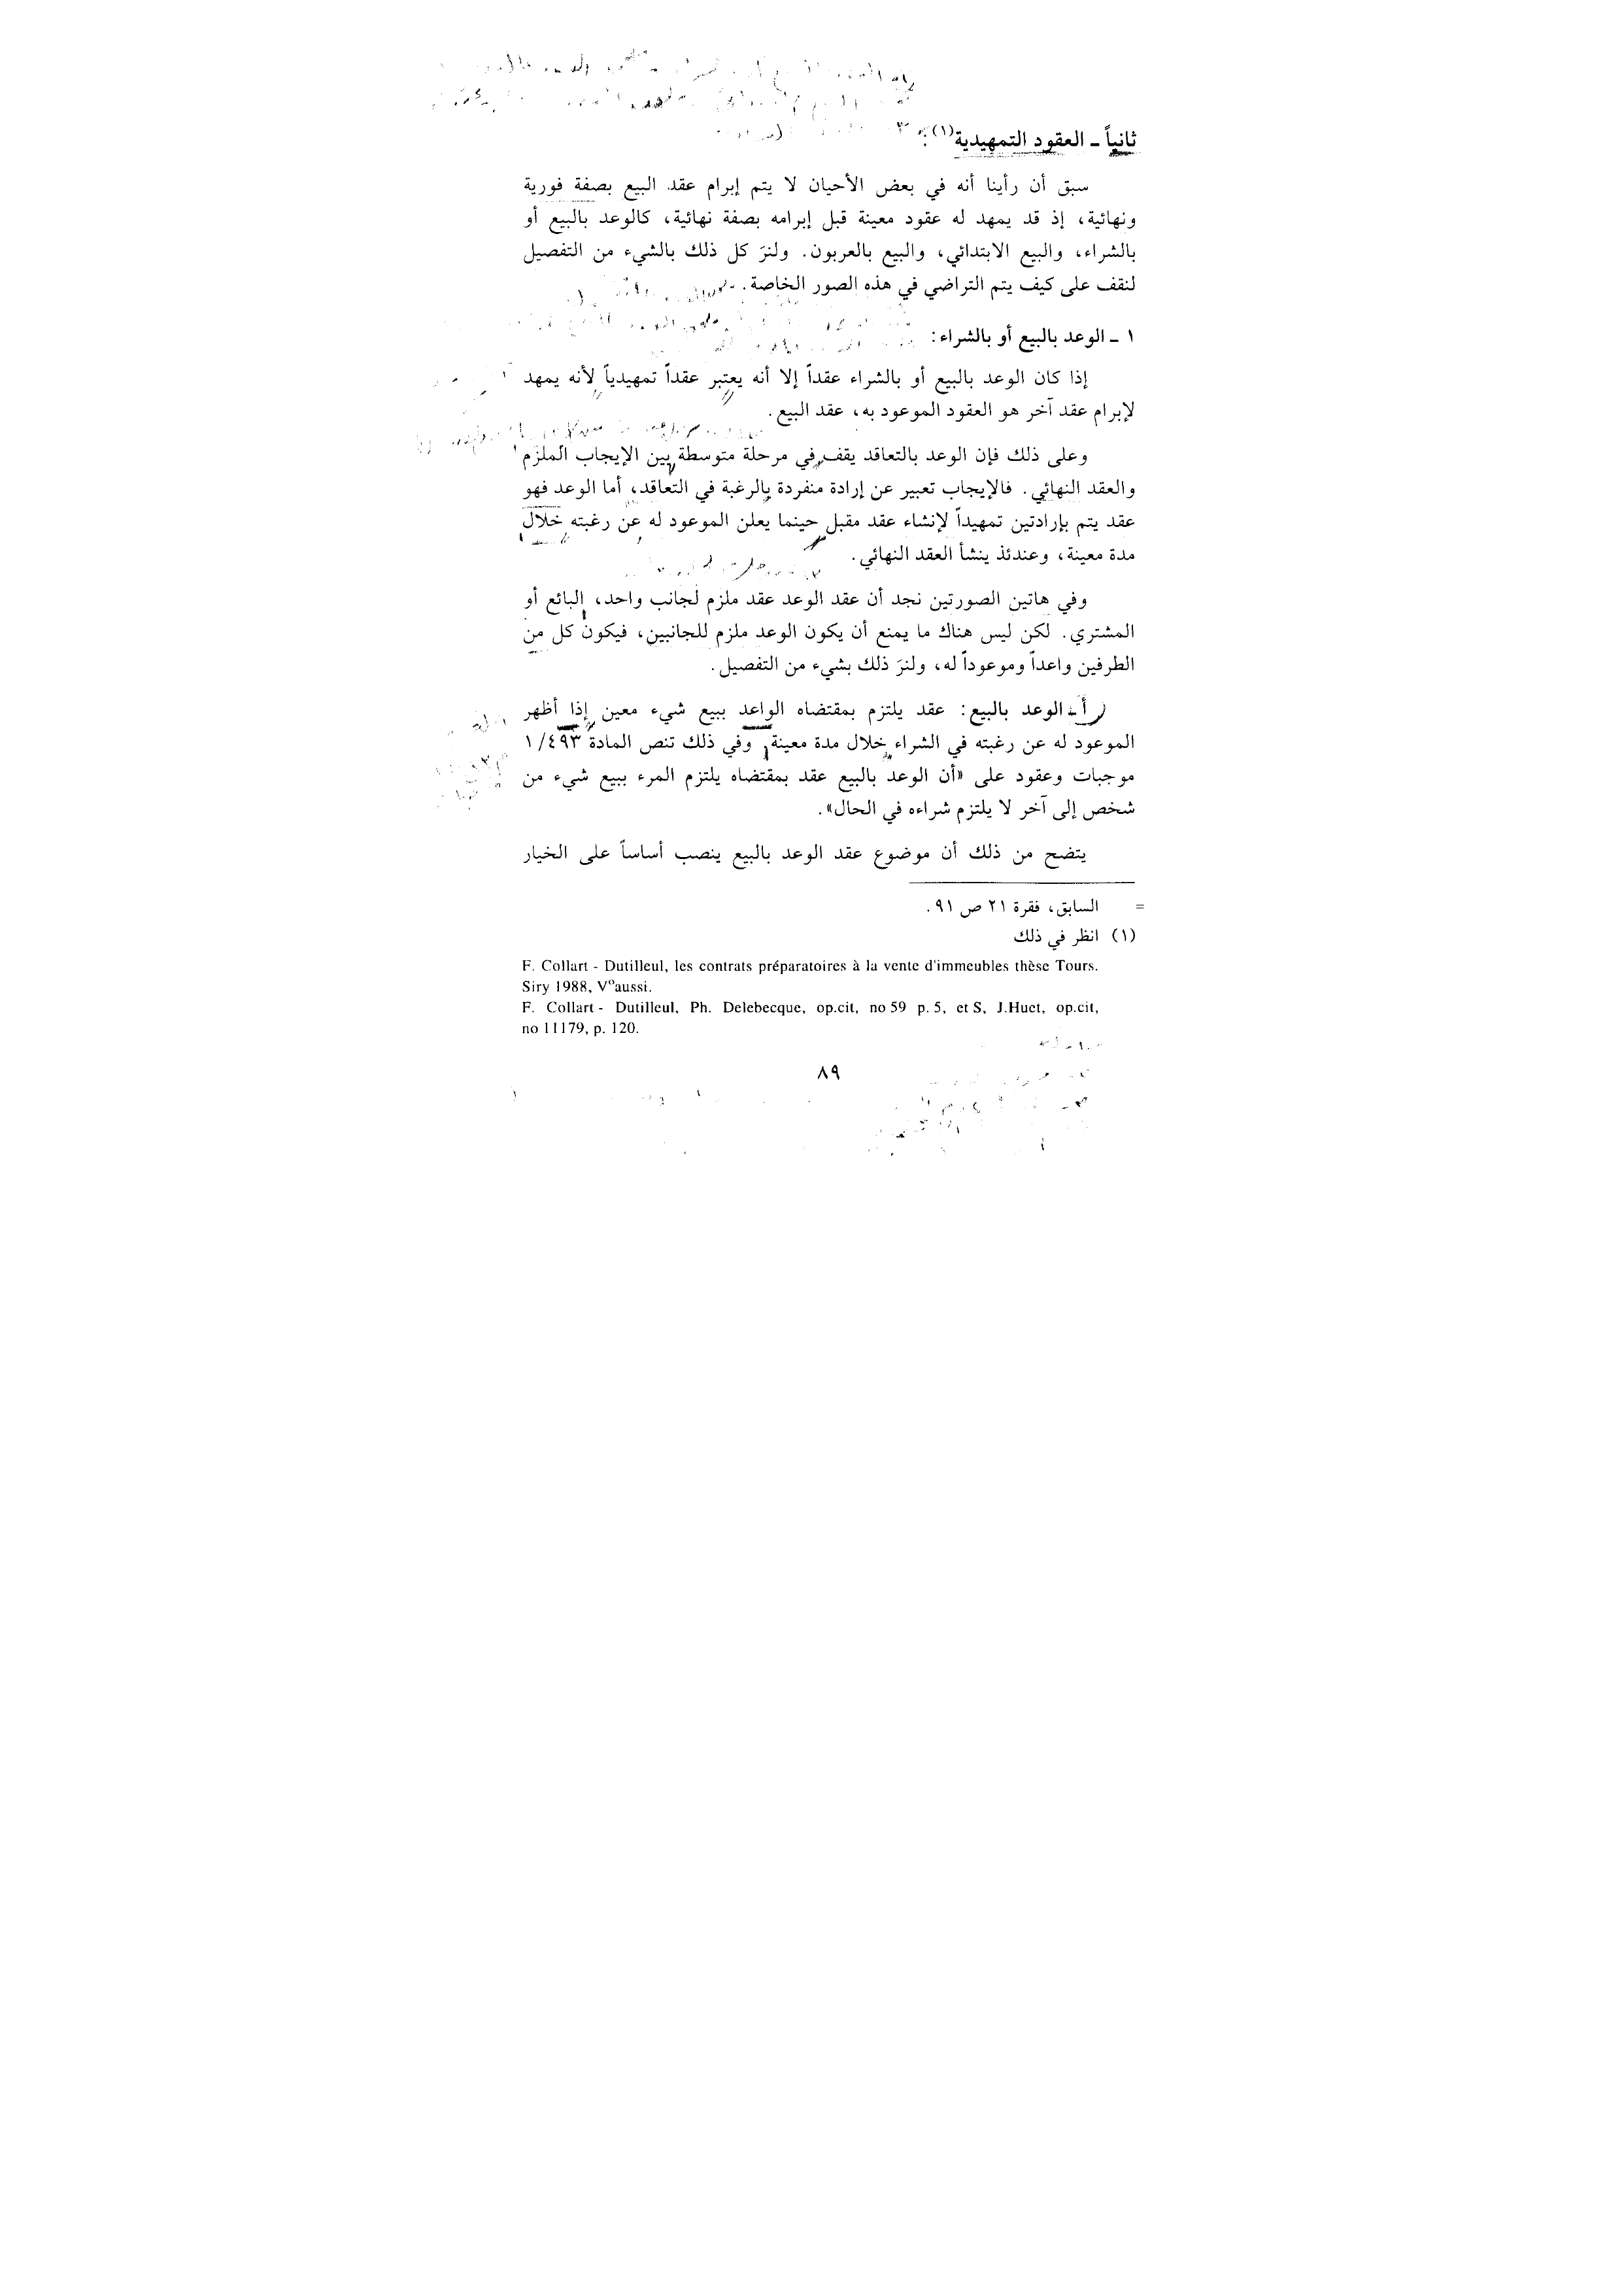 ثانياً ـ العقود التمهيدية(١):
سبق أن رأينا أنه في بعض الأحيان لا يتم إبرام عقد البيع بصفة فورية
ونهائية، إذ قد يمهد له عقود معينة قبل إبرامه بصفة نهائية، كالوعد بالبيع أو
بالشراء، والبيع الابتدائي، والبيع بالعربون. ولنرَ كل ذلك بالشيء من التفصيل
لنقف على كيف يتم التراضي في هذه الصور الخاصة.
١ ـ الوعد بالبيع أو بالشراء:
إذا كان الوعد بالبيع أو بالشراء عقداً إلا أنه يعتبر عقداً تمهيدياً لأنه يمهد
لإبرام عقد آخر هو العقود الموعود به، عقد البيع.
وعلى ذلك فإن الوعد بالتعاقد يقف في مرحلة متوسطة بين الإيجاب الملزم
والعقد النهائي. فالإيجاب تعبير عن إرادة منفردة بالرغبة في التعاقد، أما الوعد فهو
عقد يتم بإرادتين تمهيداً لإنشاء عقد مقبل حينما يعلن الموعود له عن رغبته خلال
مدة معينة، وعندئذ ينشأ العقد النهائي.
وفي هاتين الصورتين نجد أن عقد الوعد عقد ملزم لجانب واحد، البائع أو
المشتري. لكن ليس هناك ما يمنع أن يكون الوعد ملزم للجانبين، فيكون كل من
الطرفين واعداً وموعوداً له، ولنرَ ذلك بشيء من التفصيل.
أ ـ الوعد بالبيع: عقد يلتزم بمقتضاه الواعد ببيع شيء معين إذا أظهر
الموعود له عن رغبته في الشراء خلال مدة معينة وفي ذلك تنص المادة ١/٤٩٣
موجبات وعقود على «أن الوعد بالبيع عقد بمقتضاه يلتزم المرء ببيع شيء من
شخص إلى آخر لا يلتزم شراءه في الحال».
يتضح من ذلك أن موضوع عقد الوعد بالبيع ينصب أساساً على الخيار
= السابق، فقرة ٢١ ص ٩١.
(١) انظر في ذلك
F. Collart - Dutilleul, les contrats préparatoires à la vente d'immeubles thèse Tours.
Siry 1988, V°aussi.
F. Collart - Dutilleul, Ph. Delebecque, op.cit, no 59 p. 5, et S, J.Huet, op.cit,
no 11179, p. 120.
٨٩